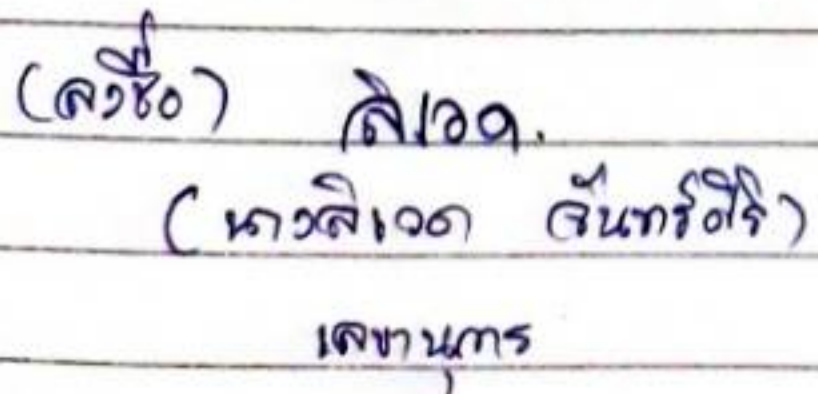 (ลงชื่อ) ลิเวด.
(นางลิเวด จันทร์ศิริ)
เลขานุการ